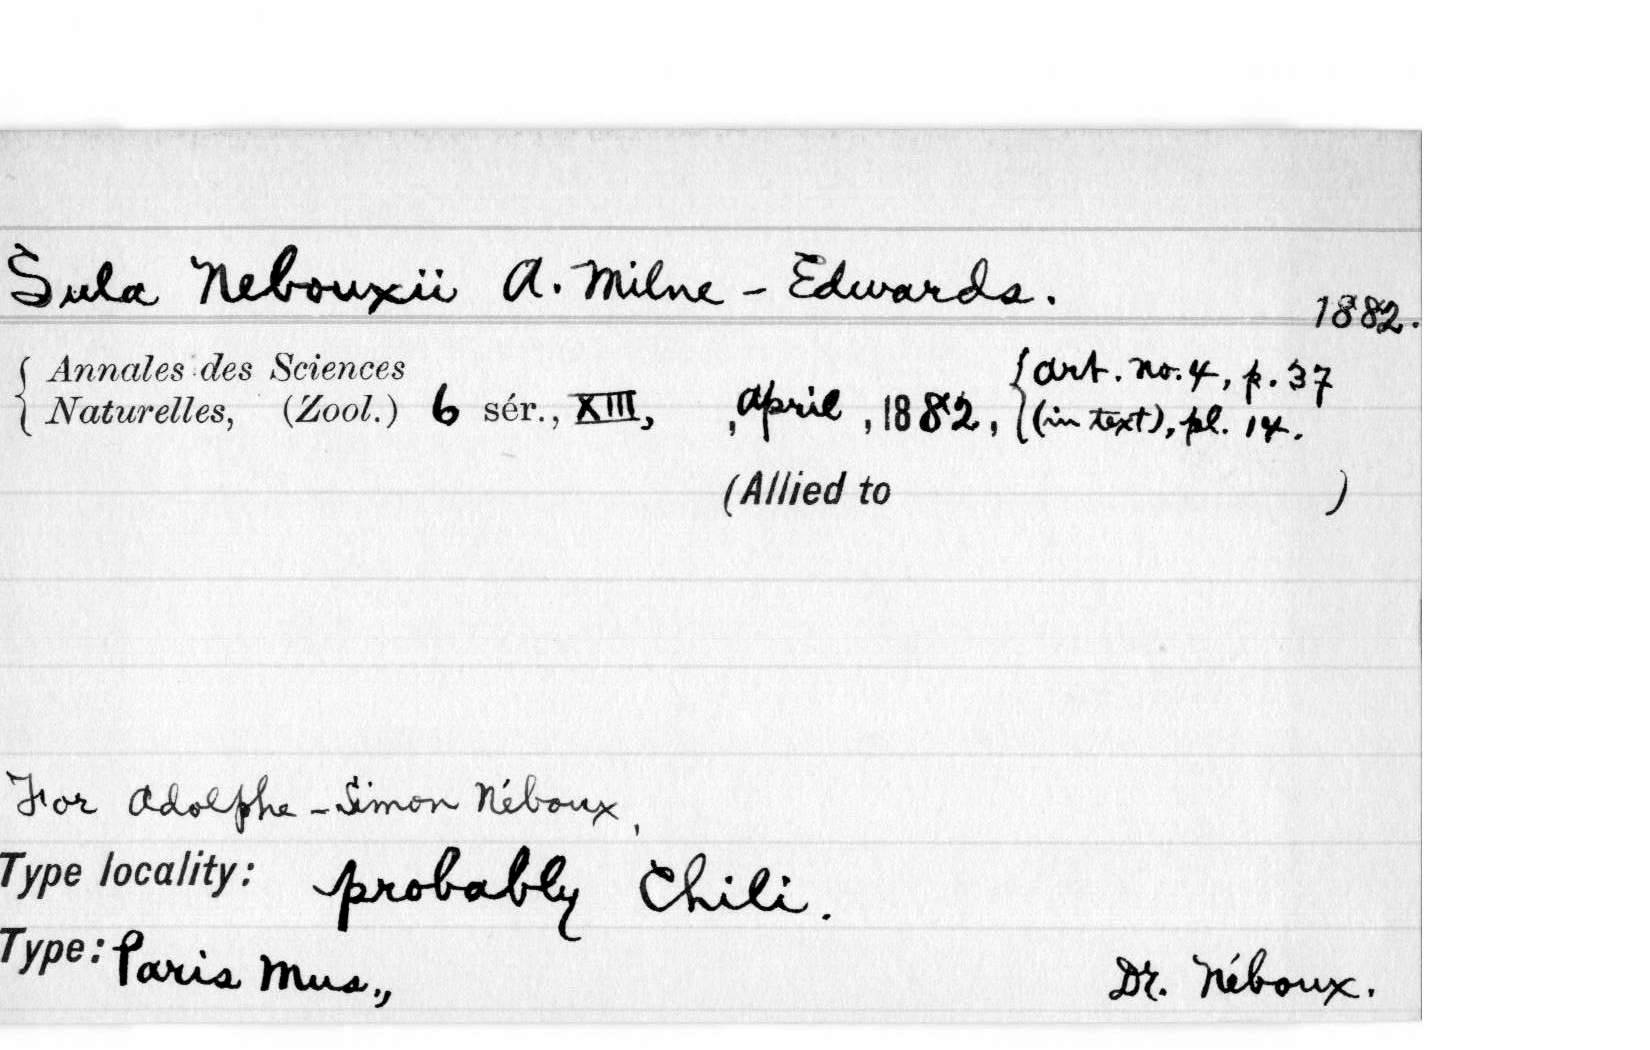 Sula Nebouxii A. Milne-Edwards.
1882.
{ Annales des Sciences
Naturelles, (Zool.) 6 sér., XIII, , April , 1882, { art. no. 4, p. 37
(in text), pl. 14.
(Allied to )
For Adolphe-Simon Néboux,
Type locality: probably Chili.
Type: Paris Mus., Dr. Néboux.